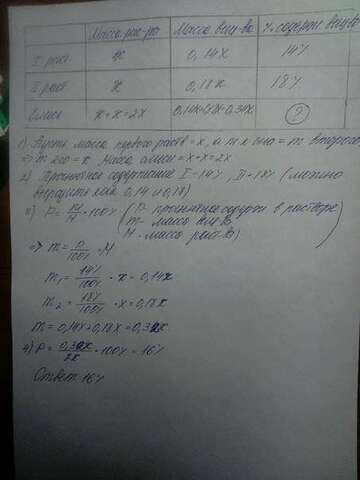 Масса рас-ра Масса вещ-ва % содерж вещ-ва
I раст x 0,14x 14%
II раст x 0,18x 18%
Смесь x+x=2x 0,14x+0,18x=0,34x ?
1) Пусть масса первого раств=x, а т.к она = m второго,
=> m его=x Масса смеси=x+x=2x
2) Процентное содержание I-14%, II-18% (можно
выразить как 0,14 и 0,18)
3) P=m/M·100% (P- процентное содерж в растворе
m- масса вещ-ва
M- масса раст-ва)
=> m=P/100%·M
m1=14%/100%·x=0,14x
m2=18%/100%·x=0,18x
m=0,14x+0,18x=0,32x
4) P=0,32x/2x·100%=16%
Ответ 16%